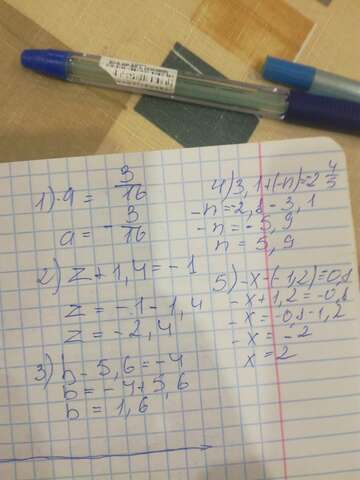 1) -a = 3/16
a = -3/16
2) z + 1,4 = -1
z = -1 - 1,4
z = -2,4
3) b - 5,6 = -4
b = -4 + 5,6
b = 1,6
4) 3,1 + (-n) = -2 4/5
-n = -2,8 - 3,1
-n = -5,9
n = 5,9
5) -x - (-1,2) = -0,8
-x + 1,2 = -0,8
-x = -0,8 - 1,2
-x = -2
x = 2